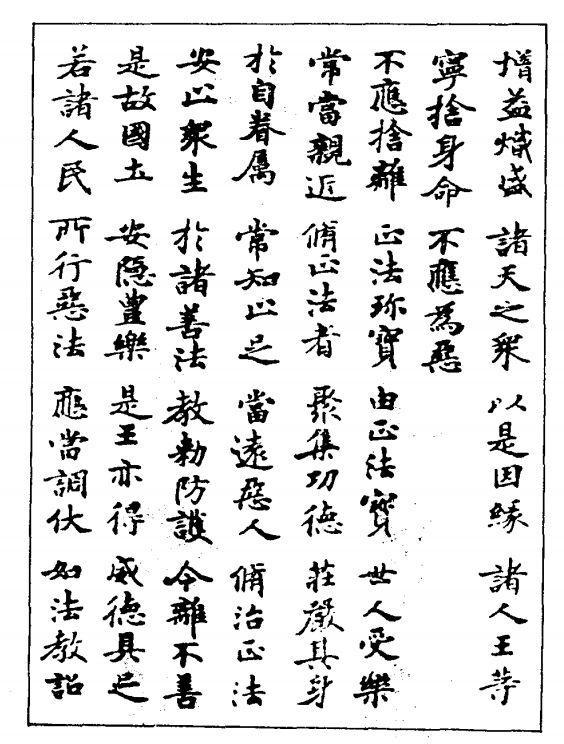 增益熾盛 諸天之眾 以是因緣 諸人王等
寧捨身命 不應為惡
不應捨離 正法珎寶 由正法寶 世人受樂
常當親近 脩正法者 聚集功德 莊嚴其身
於自眷属 常知止足 當遠惡人 脩治正法
安止眾生 於諸善法 教勑防護 令離不善
是故國土 安隱豊樂 是王亦得 威德具足
若諸人民 所行惡法 應當調伏 如法教詔